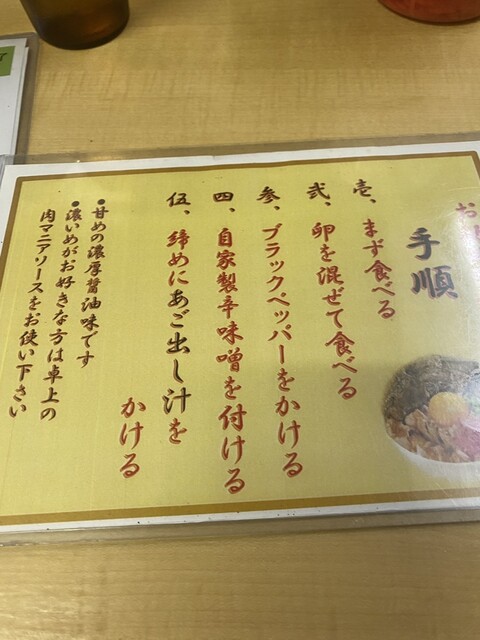 手順
壱、まず食べる
弐、卵を混ぜて食べる
参、ブラックペッパーをかける
四、自家製辛味噌を付ける
伍、締めにあご出し汁を
かける
●甘めの濃厚醤油味です
●濃いめがお好きな方は卓上の
肉マニアソースをお使い下さい